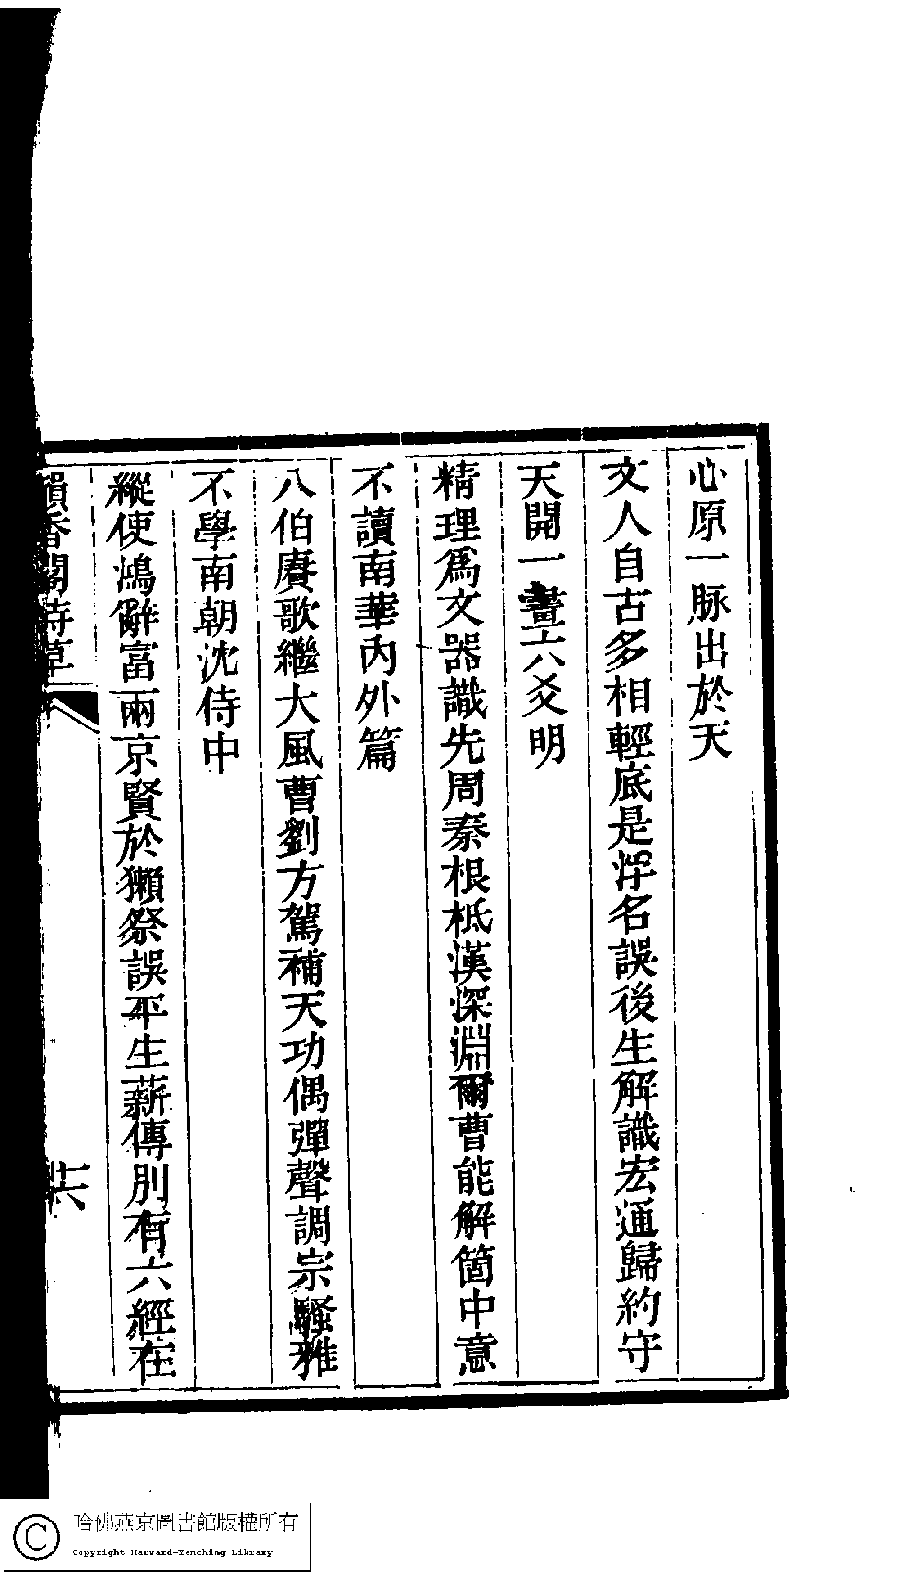 心原一脉出於天
文人自古多相輕底是浮名誤後生解識宏通歸約守
天開一畫六爻明
精理為文器識先周秦根柢漢深淵爾曹能解箇中意
不讀南華內外篇
八伯賡歌繼大風曹劉方駕補天功偶彈聲調宗騷雅
不學南朝沈侍中
縱使鴻辭富兩京賢於獺祭誤平生薪傳別有六經在
韻香閣詩草
哈佛燕京圖書館版權所有
Copyright Harvard-Yenching Library